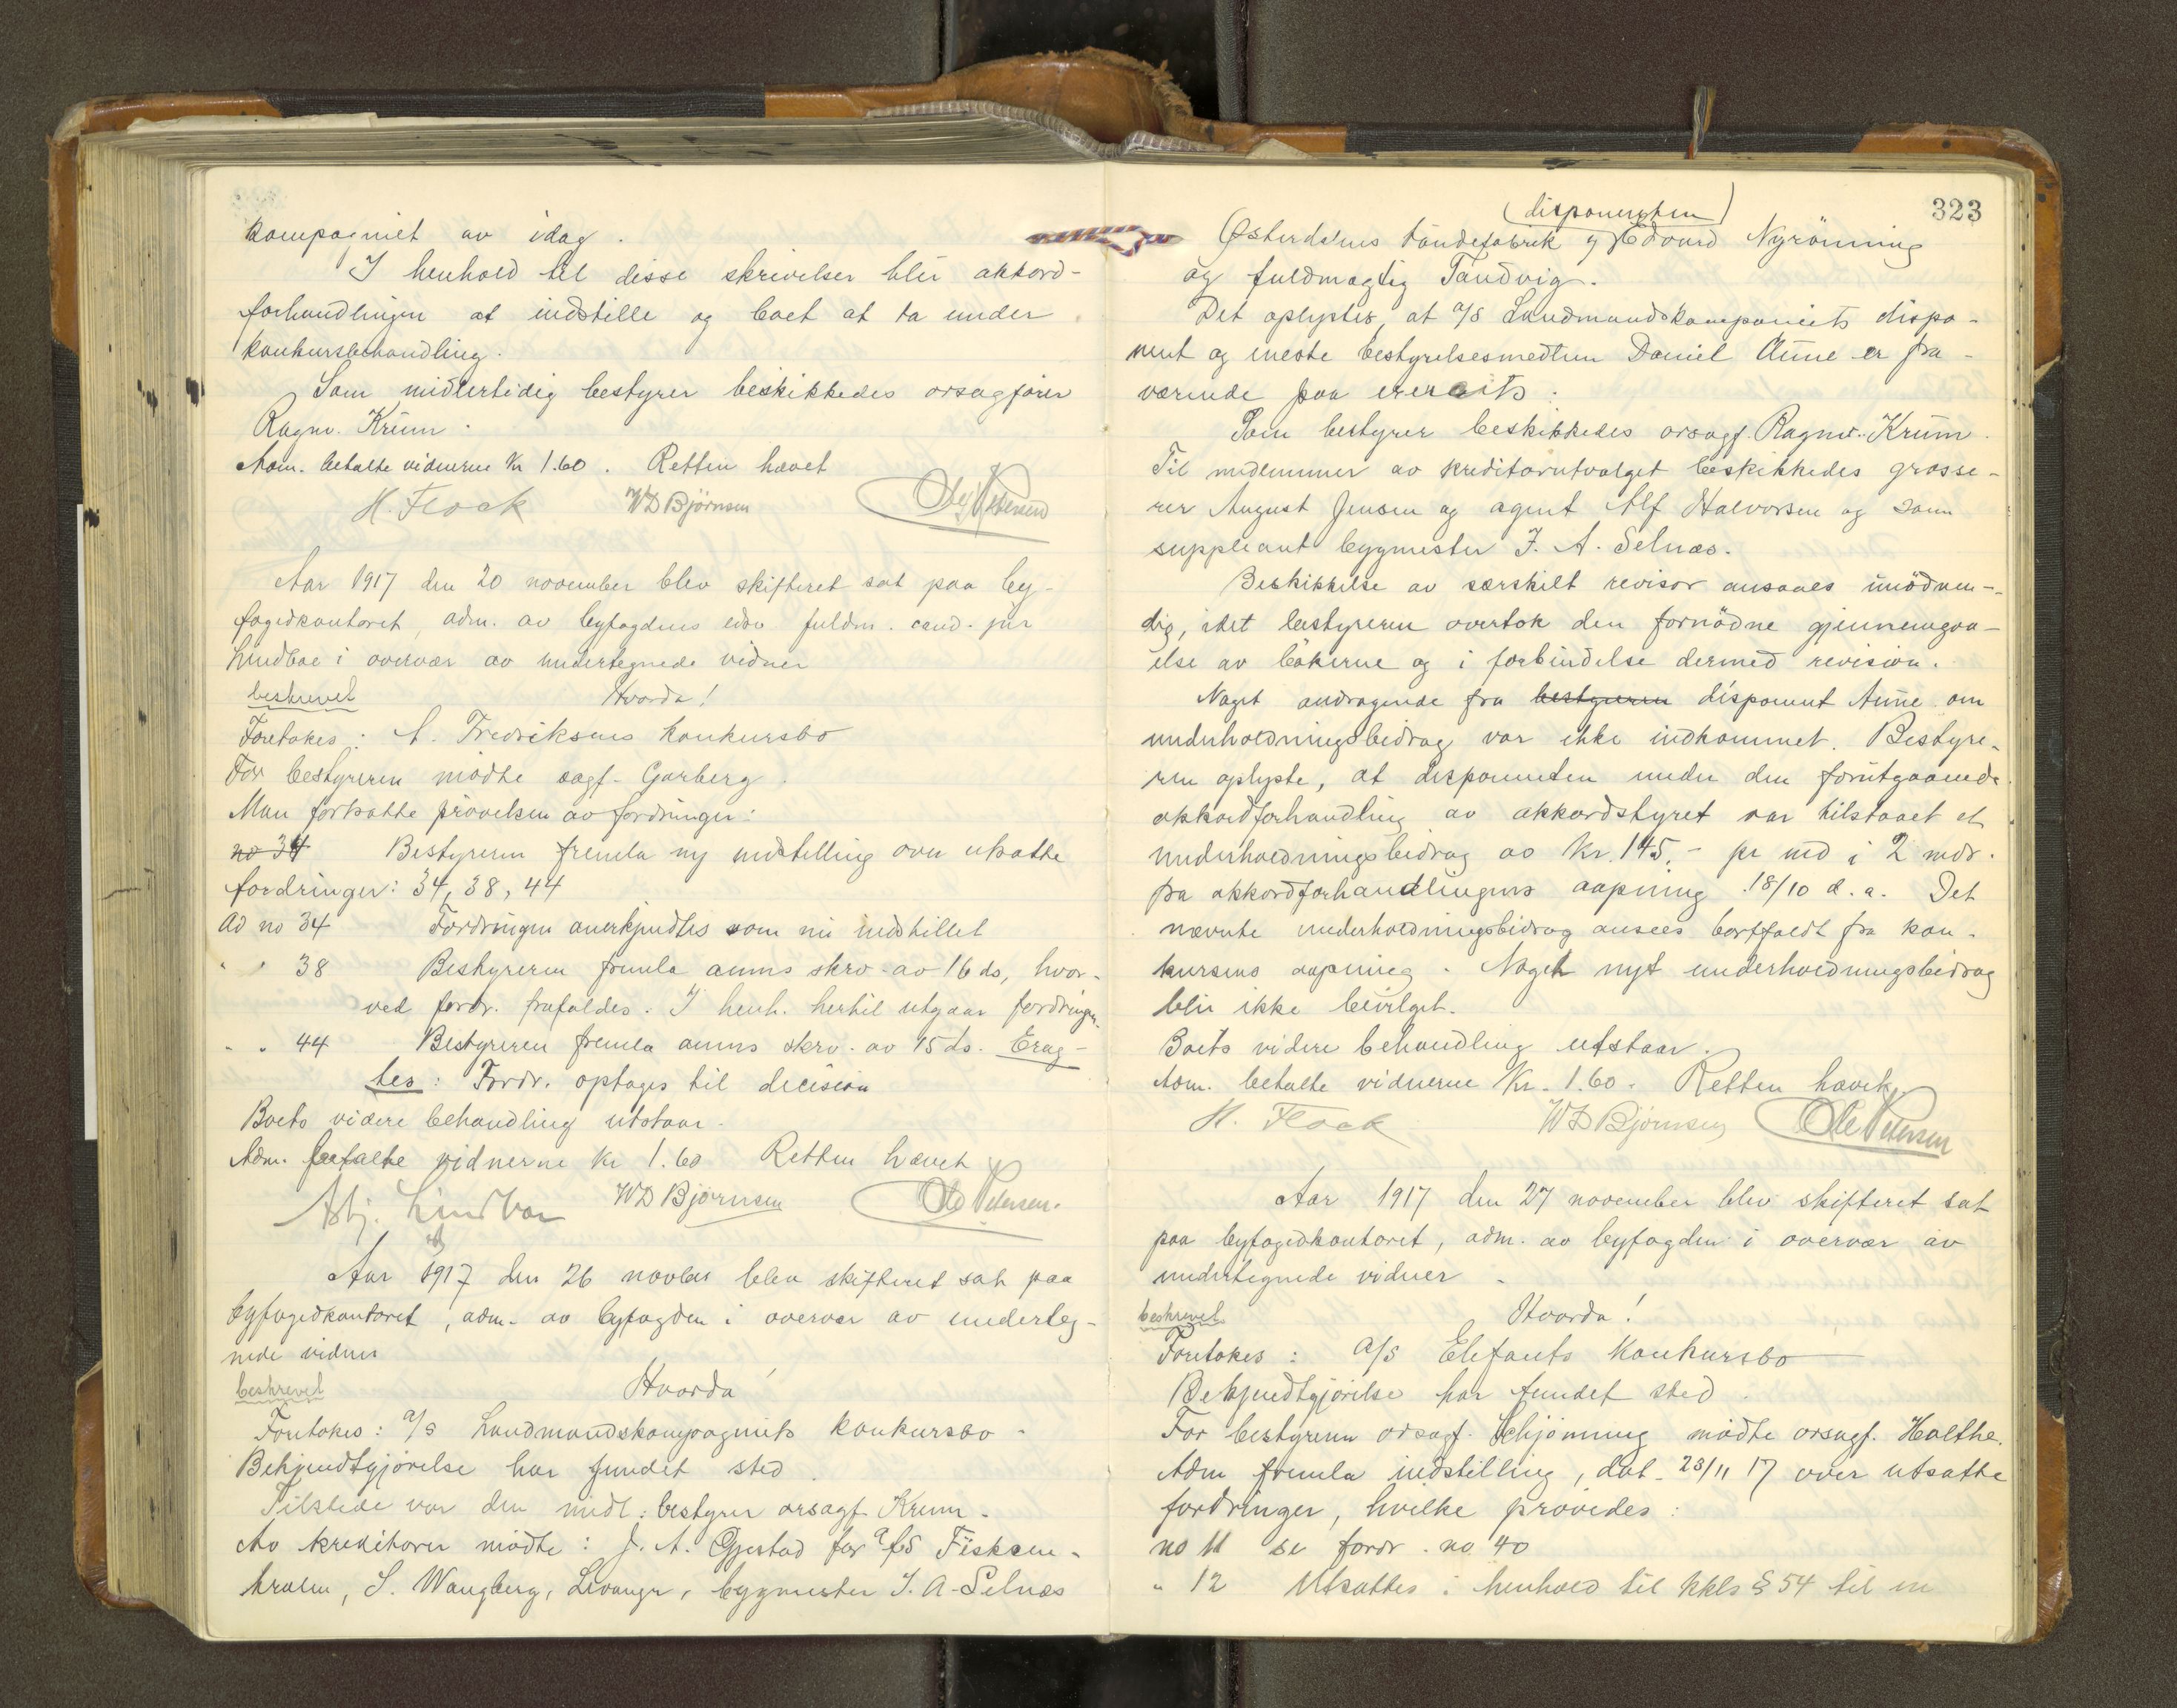 kompagniet av idag.
I henhold til disse skrivelser blir akkord-
forhandlingen at indstille og boet at ta under
konkursbehandling.
Som midlertidig bestyrer beskikkedes orsagfører
Ragnv. Krüm.
Adm. betalte vidnerne Kr 1.60. Retten hævet
H. Flock WD Bjørnsen Ole Petersen
Aar 1917 den 20 november blev skifteret sat paa by-
fogedkontoret, adm. av byfogdens edsv fuldm. cand. jur
Lindboe i overvær av undertegnede vidner
beskrevet Hvorda!
Foretokes: A. Fredriksens konkursbo
For bestyreren mødte sagf. Garberg.
Man fortsatte prøvelsen av fordringer:
no 34 Bestyreren fremla ny indstilling over utsatte
fordringer: 34, 38, 44
ad no 34 Fordringen anerkjendtes som nu indstillet
" " 38 Bestyreren fremla anms skrv. av 16 ds, hvor-
ved fordr. frafaldes. I henh. hertil utgaar fordringen.
" " 44 Bestyreren fremla anms skrv. av 15 ds. Erag-
tes: Fordr. optages til decision
Boets videre behandling utstaar.
Adm. betalte vidnerne Kr 1.60 Retten hævet
Asbj. Lindboe WD Bjørnsen Ole Petersen.
Aar 1917 den 26 novbr blev skifteret sat paa
byfogedkontoret, adm. av byfogden i overvær av underteg-
nede vidner
beskrevet Hvorda!
Foretokes: A/S Landmandskompagniets konkursbo.
Bekjendtgjørelse har fundet sted.
Tilstede var den midl. bestyrer orsagf. Krüm.
Av kreditorer mødte: J. A. Gjestad for A/S Fiskeen-
tralen, S. Wangberg, Levanger, bygmester J. A. Selnæs
323
(disponenten)
Østerdalens tøndefabrik v/ Edvard Nyrønning
og fuldmægtig Tandvig.
Det oplystes, at A/S Landmandskompaniets dispo-
nent og eneste bestyrelsesmedlem Daniel Aune er fra-
værende paa exercits.
Som bestyrer beskikkedes orsagf. Ragnv. Krüm.
Til medlemmer av kreditorutvalget beskikkedes grosse-
rer August Jensen og agent Alf Halvorsen og som
suppleant bygmester J. A. Selnæs.
Beskikkelse av særskilt revisor ansaaes unødven-
dig, idet bestyreren overtok den fornødne gjennemgaa-
else av bøkerne og i forbindelse dermed revision.
Noget andragende fra bestyreren disponent Aune om
underholdningsbidrag var ikke indkommet. Bestyre-
ren oplyste, at disponenten under den forutgaaende
akkordforhandling av akkordstyret var tilstaaet et
underholdningsbidrag av Kr. 145.- pr md i 2 mdr.
fra akkordforhandlingens aapning 18/10 d.a. Det
nævnte underholdningsbidrag ansees bortfaldt fra kon-
kursens aapning. Noget nyt underholdningsbidrag
blir ikke bevilget.
Boets videre behandling utstaar.
Adm. betalte vidnerne Kr. 1.60. Retten hævet
H. Flock WD Bjørnsen Ole Petersen
Aar 1917 den 27 november blev skifteret sat
paa byfogedkontoret, adm. av byfogden i overvær av
undertegnede vidner.
beskrevet Hvorda!
Foretokes: A/S Elefants konkursbo
Bekjendtgjørelse har fundet sted.
For bestyreren orsagf. Schjønning mødte orsagf. Holthe.
Adm fremla indstilling, dat. 23/11 17 over utsatte
fordringer, hvilke prøvedes:
no 11 se fordr. no 40
" 12 Utsattes i henhold til kkls § 54 til en